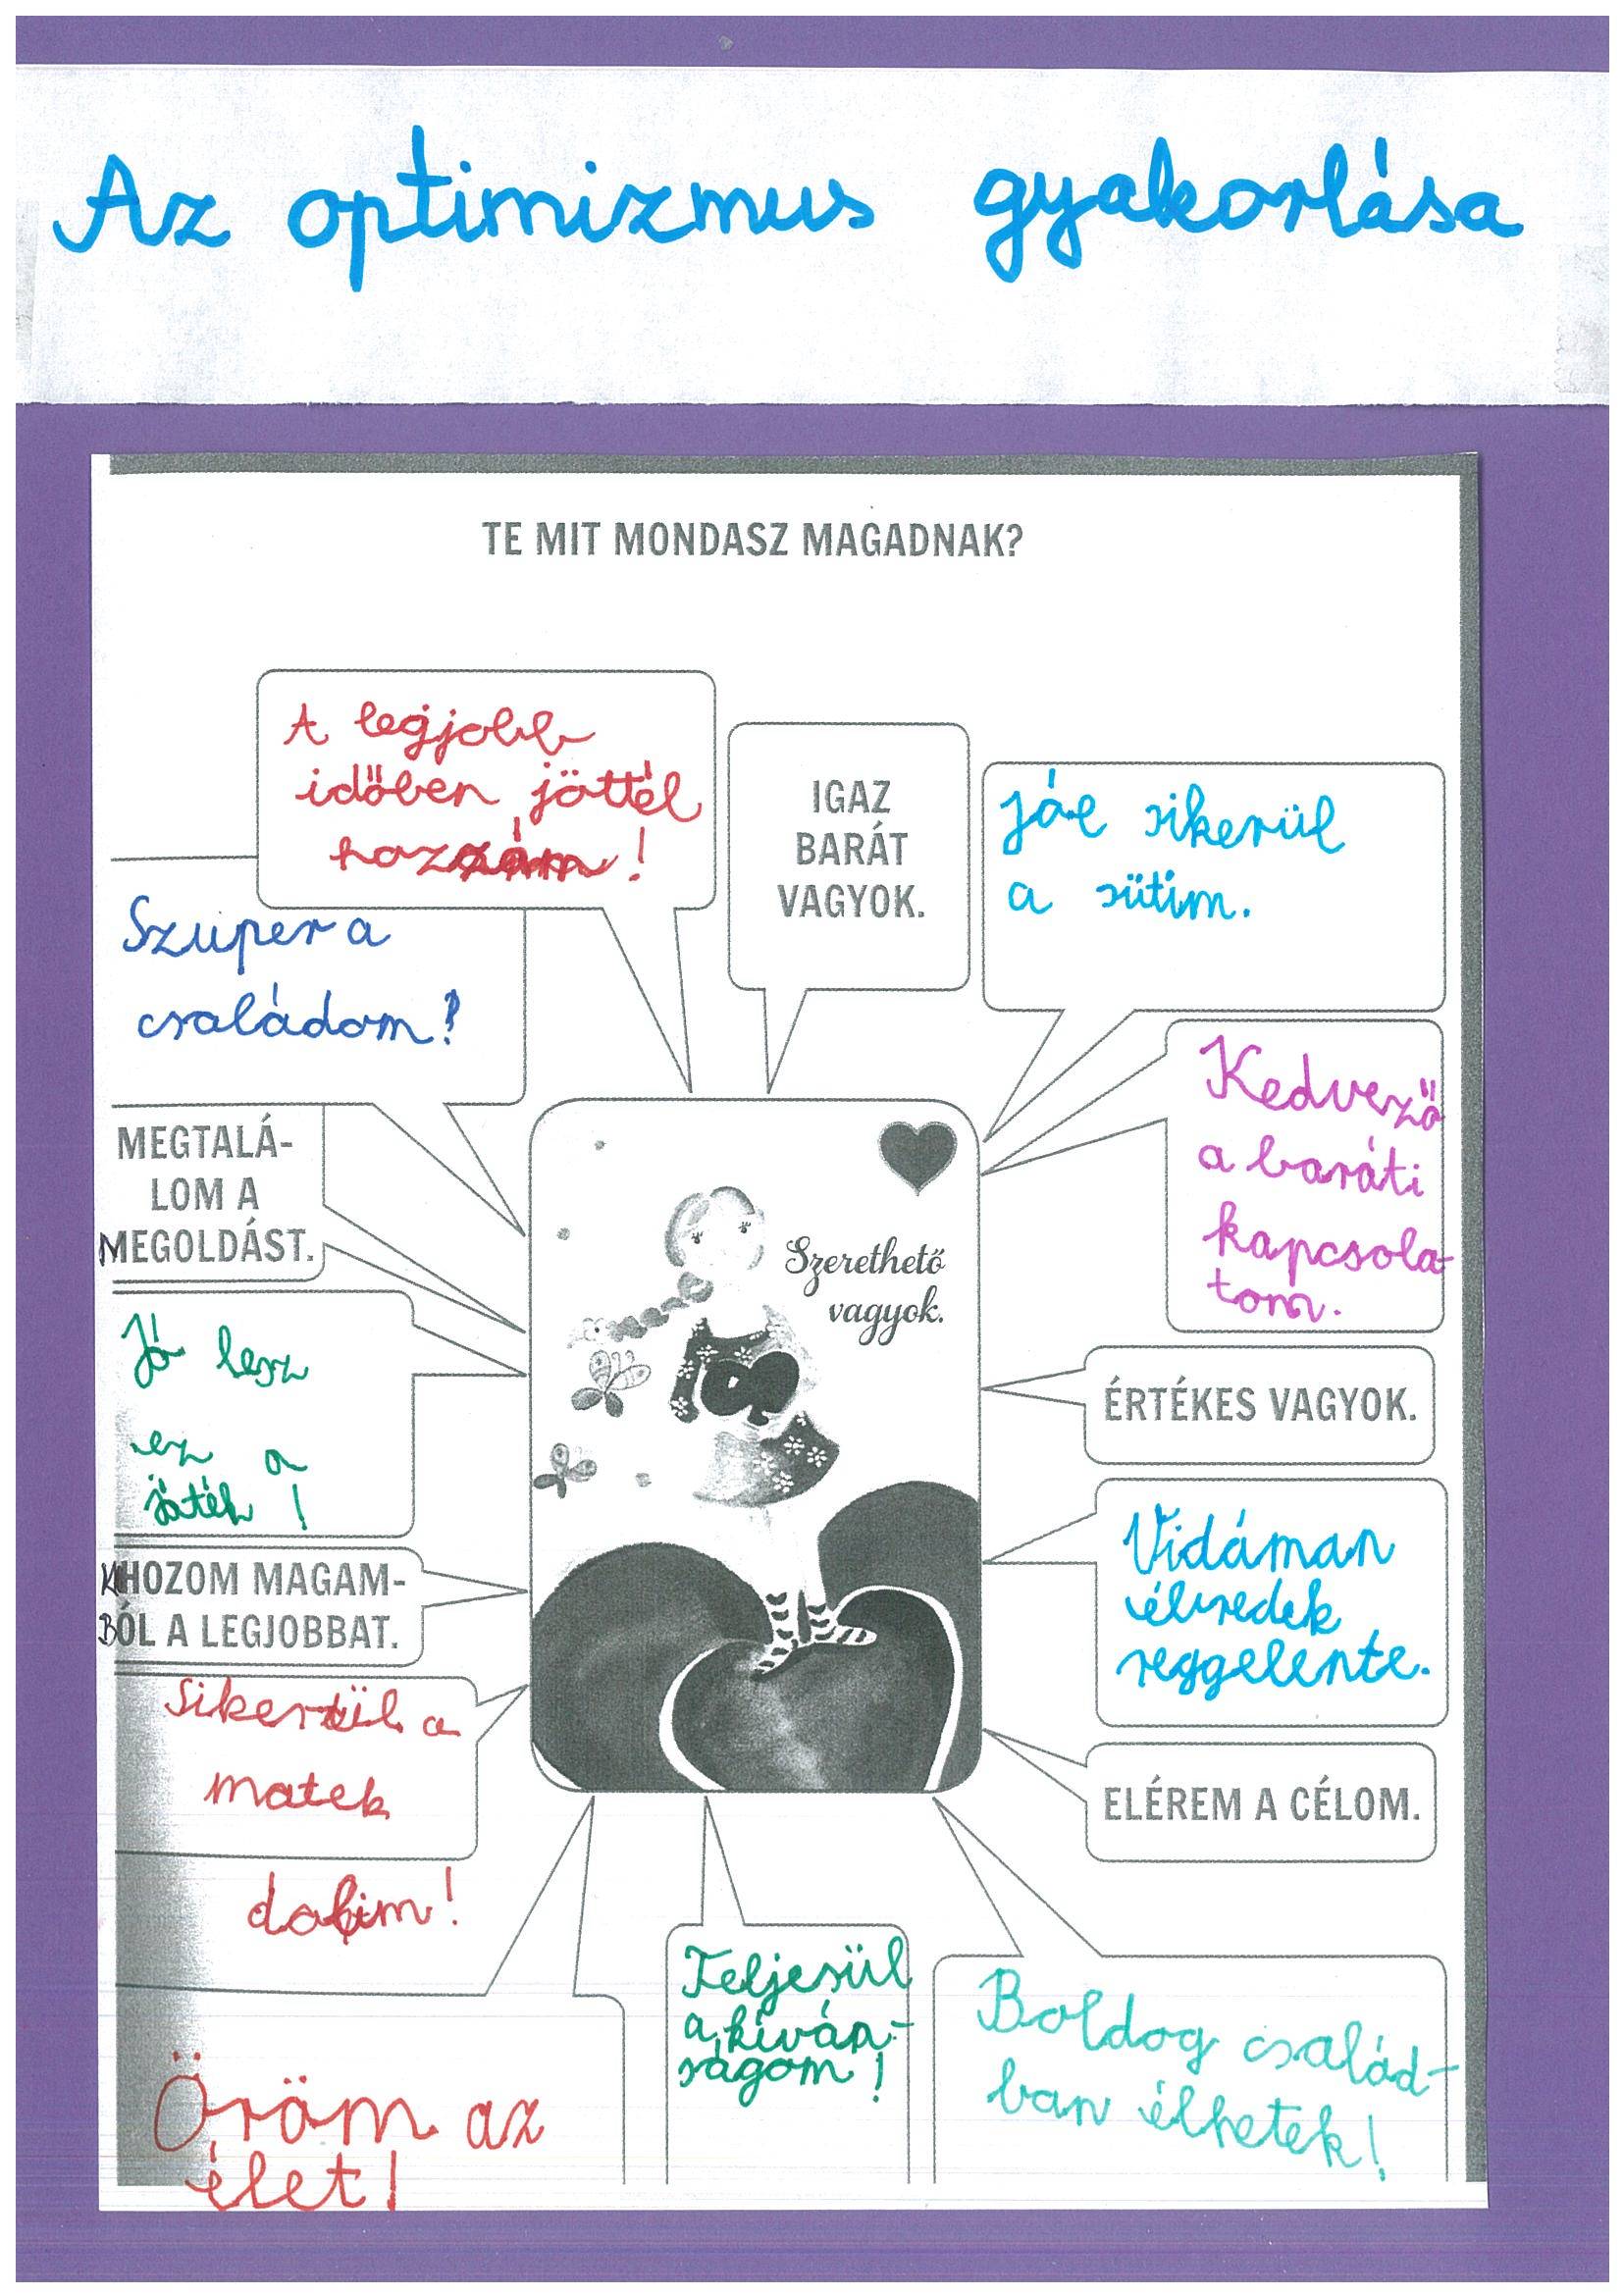 Az optimizmus gyakorlása
TE MIT MONDASZ MAGADNAK?
A legjobb
időben jöttél
hozzám!
IGAZ
BARÁT
VAGYOK.
Jól sikerül
a sütim.
Szuper a
családom!
Kedvező
a baráti
kapcsola-
tom.
MEGTALÁ-
LOM A
MEGOLDÁST.
Szerethető
vagyok.
Jó lesz
ez a
játék!
ÉRTÉKES VAGYOK.
KIHOZOM MAGAM-
BÓL A LEGJOBBAT.
Vidáman
ébredek
reggelente.
Sikerül a
matek
dolim!
ELÉREM A CÉLOM.
Teljesül
a kíván-
ságom!
Boldog család-
ban élhetek!
Öröm az
élet!